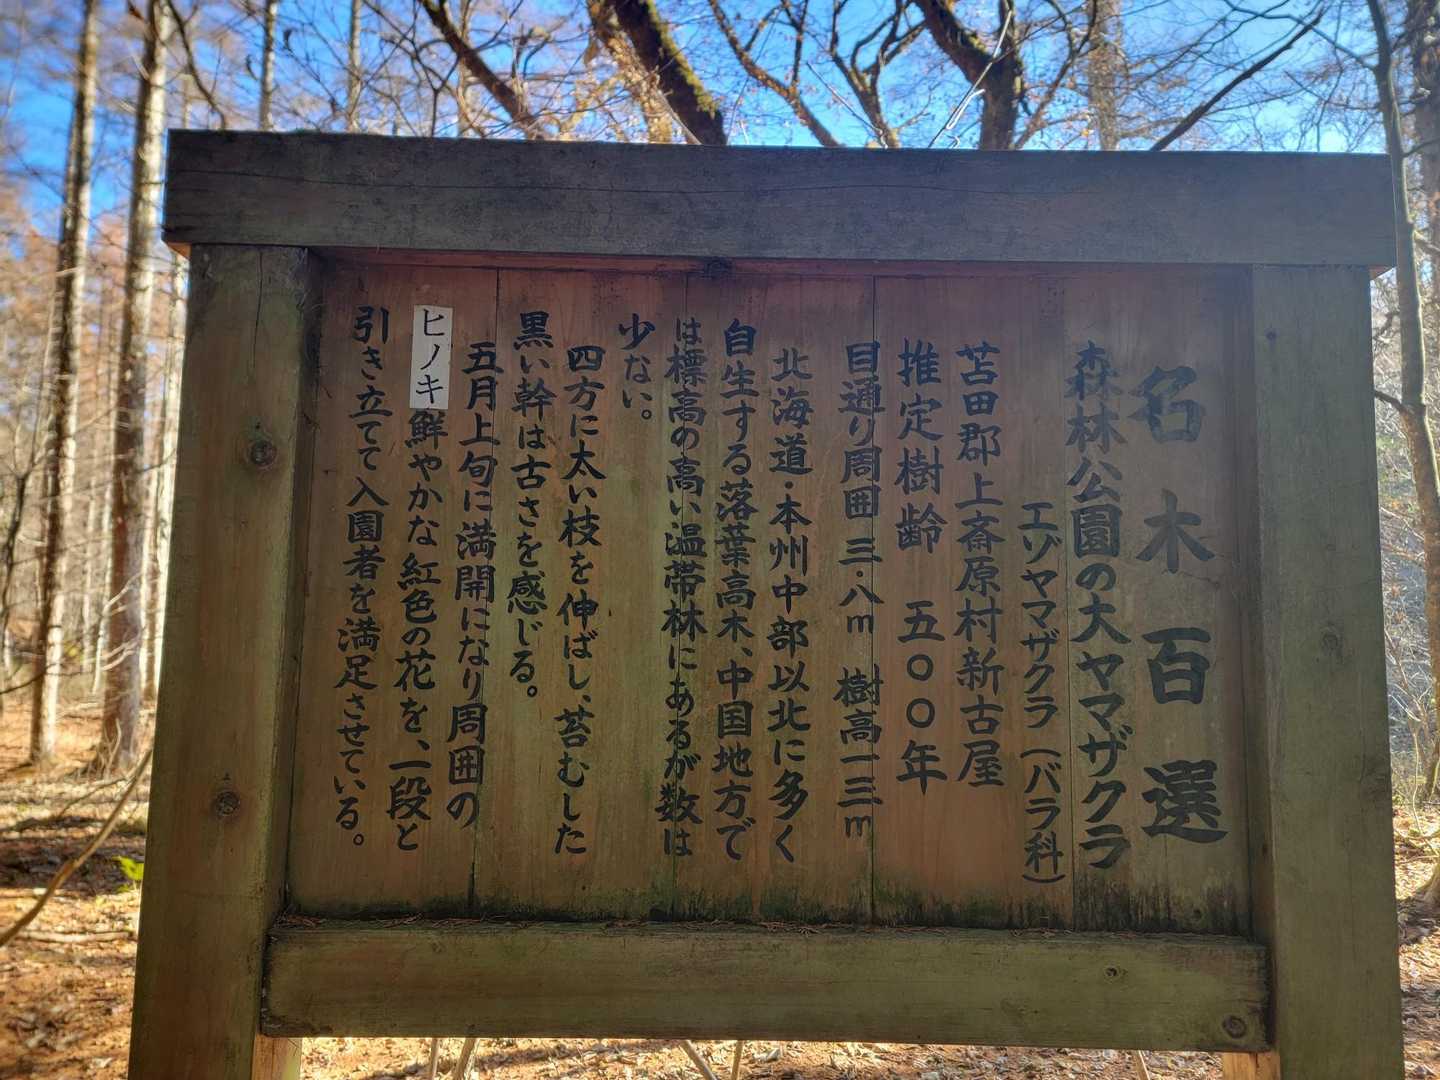 名木百選
森林公園の大ヤマザクラ
エゾヤマザクラ(バラ科)
苫田郡上斎原村新古屋
推定樹齢 五〇〇年
目通り周囲 三・八m 樹高一三m
北海道・本州中部以北に多く
自生する落葉高木、中国地方で
は標高の高い温帯林にあるが数は
少ない。
四方に太い枝を伸ばし、苔むした
黒い幹は古さを感じる。
五月上旬に満開になり周囲の
ヒノキ鮮やかな紅色の花を、一段と
引き立てて入園者を満足させている。